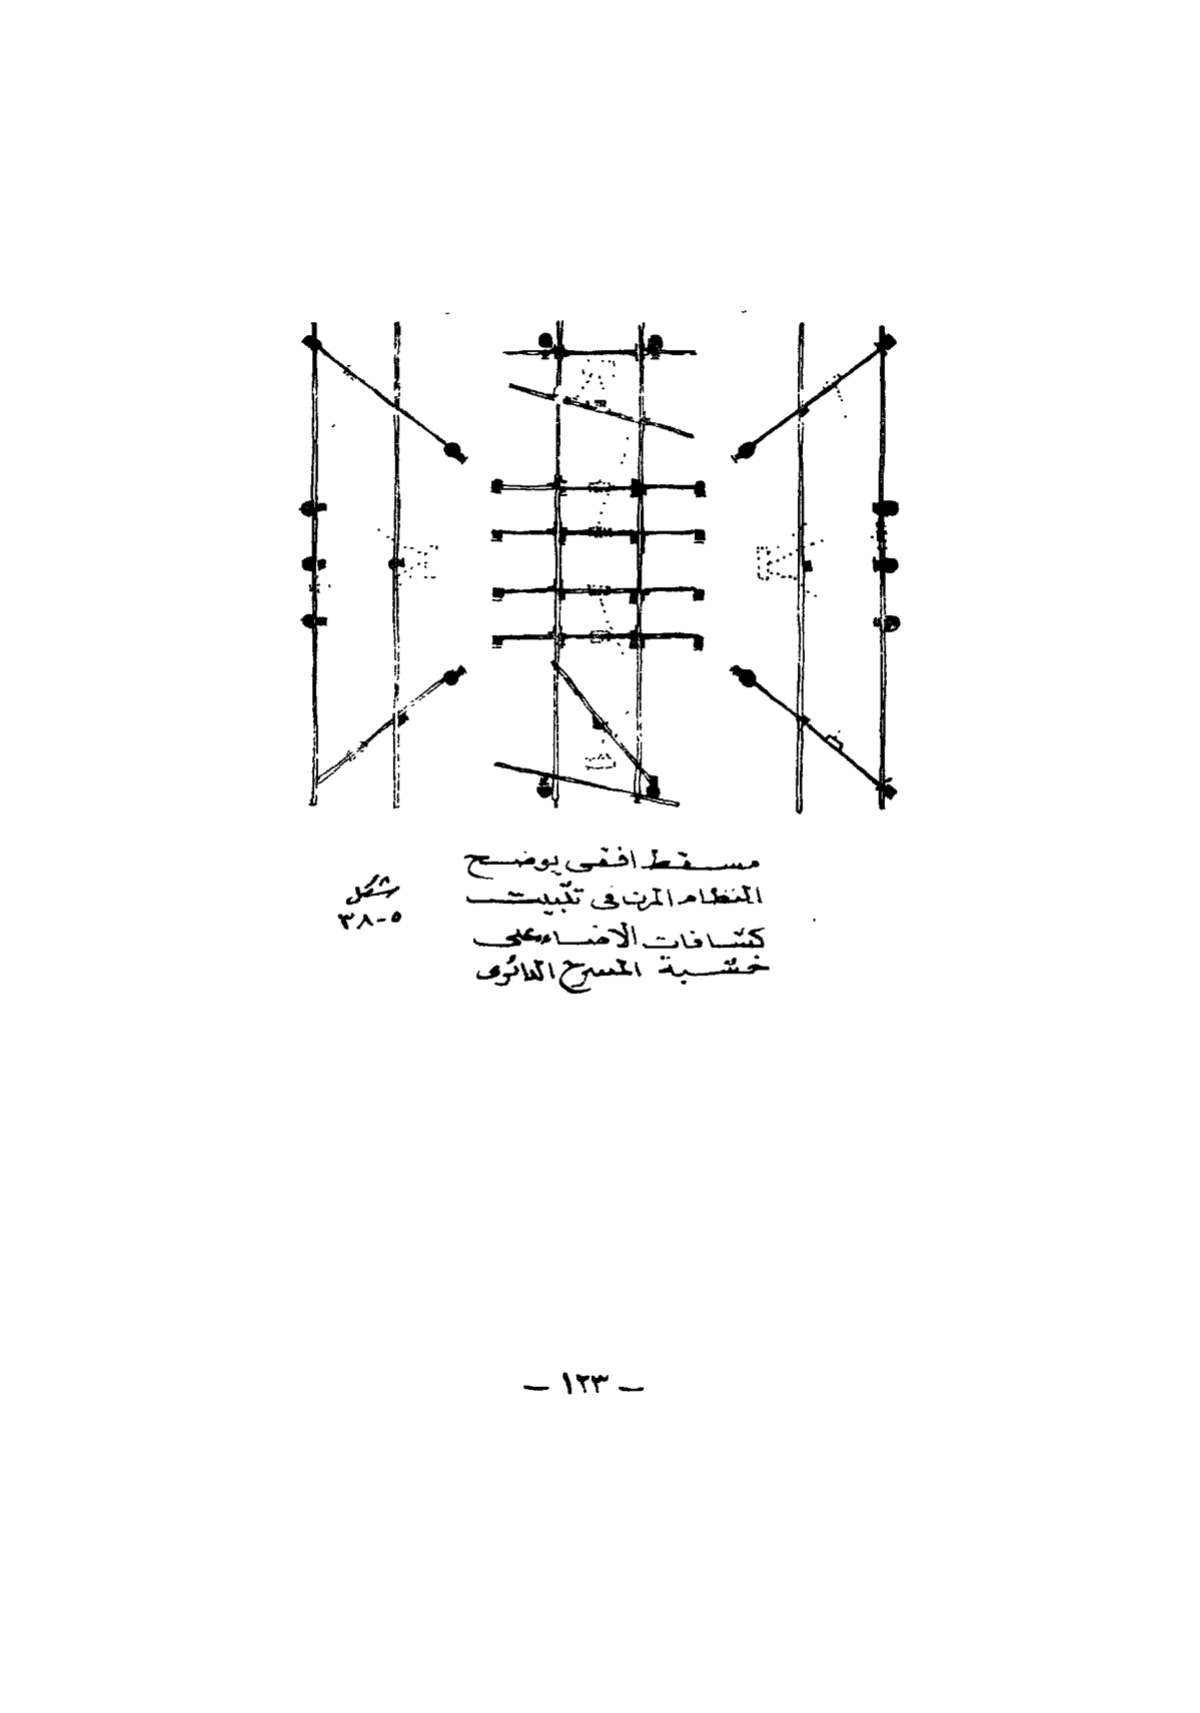 مسقط افقى يوضح
النظام المرن فى تثبيت
كشافات الاضاءه على
خشبة المسرح الدائرى
شكل
٥-٣٨
– ١٢٣ –